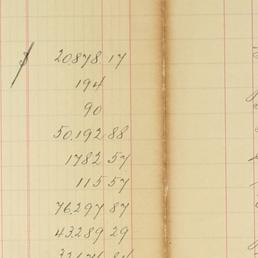 20878 17
194
90
50.192 88
1782 57
115 57
76.297 87
43.289 29